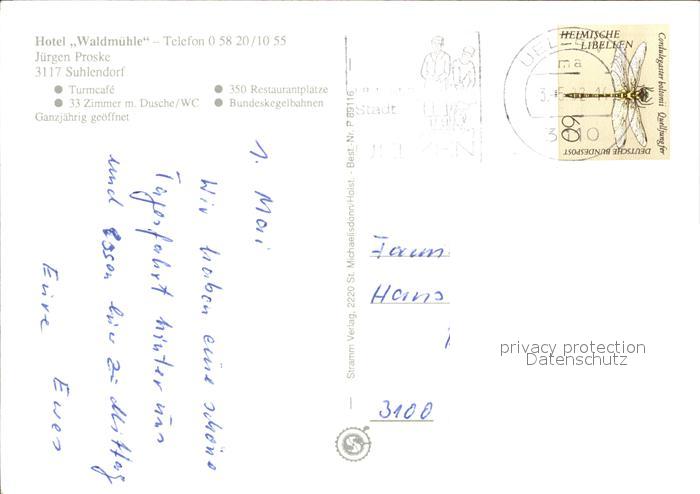 Hotel „Waldmühle“ – Telefon 0 58 20/10 55
Jürgen Proske
3117 Suhlendorf
● Turmcafé
● 350 Restaurantplätze
● 33 Zimmer m. Dusche/WC
● Bundeskegelbahnen
Ganzjährig geöffnet
1. Mai
Wir haben eine schöne
Tagesfahrt hinter uns
und essen hier zu Mittag
Eure
Stramm Verlag, 2220 St. Michaelisdonn/Holst. - Best.-Nr. P 89116
Stadt
UEL
3110
HEIMISCHE
LIBELLEN
Cordulegaster boltonii Quelljungfer
60
DEUTSCHE BUNDESPOST
Hans
3100
privacy protection
Datenschutz